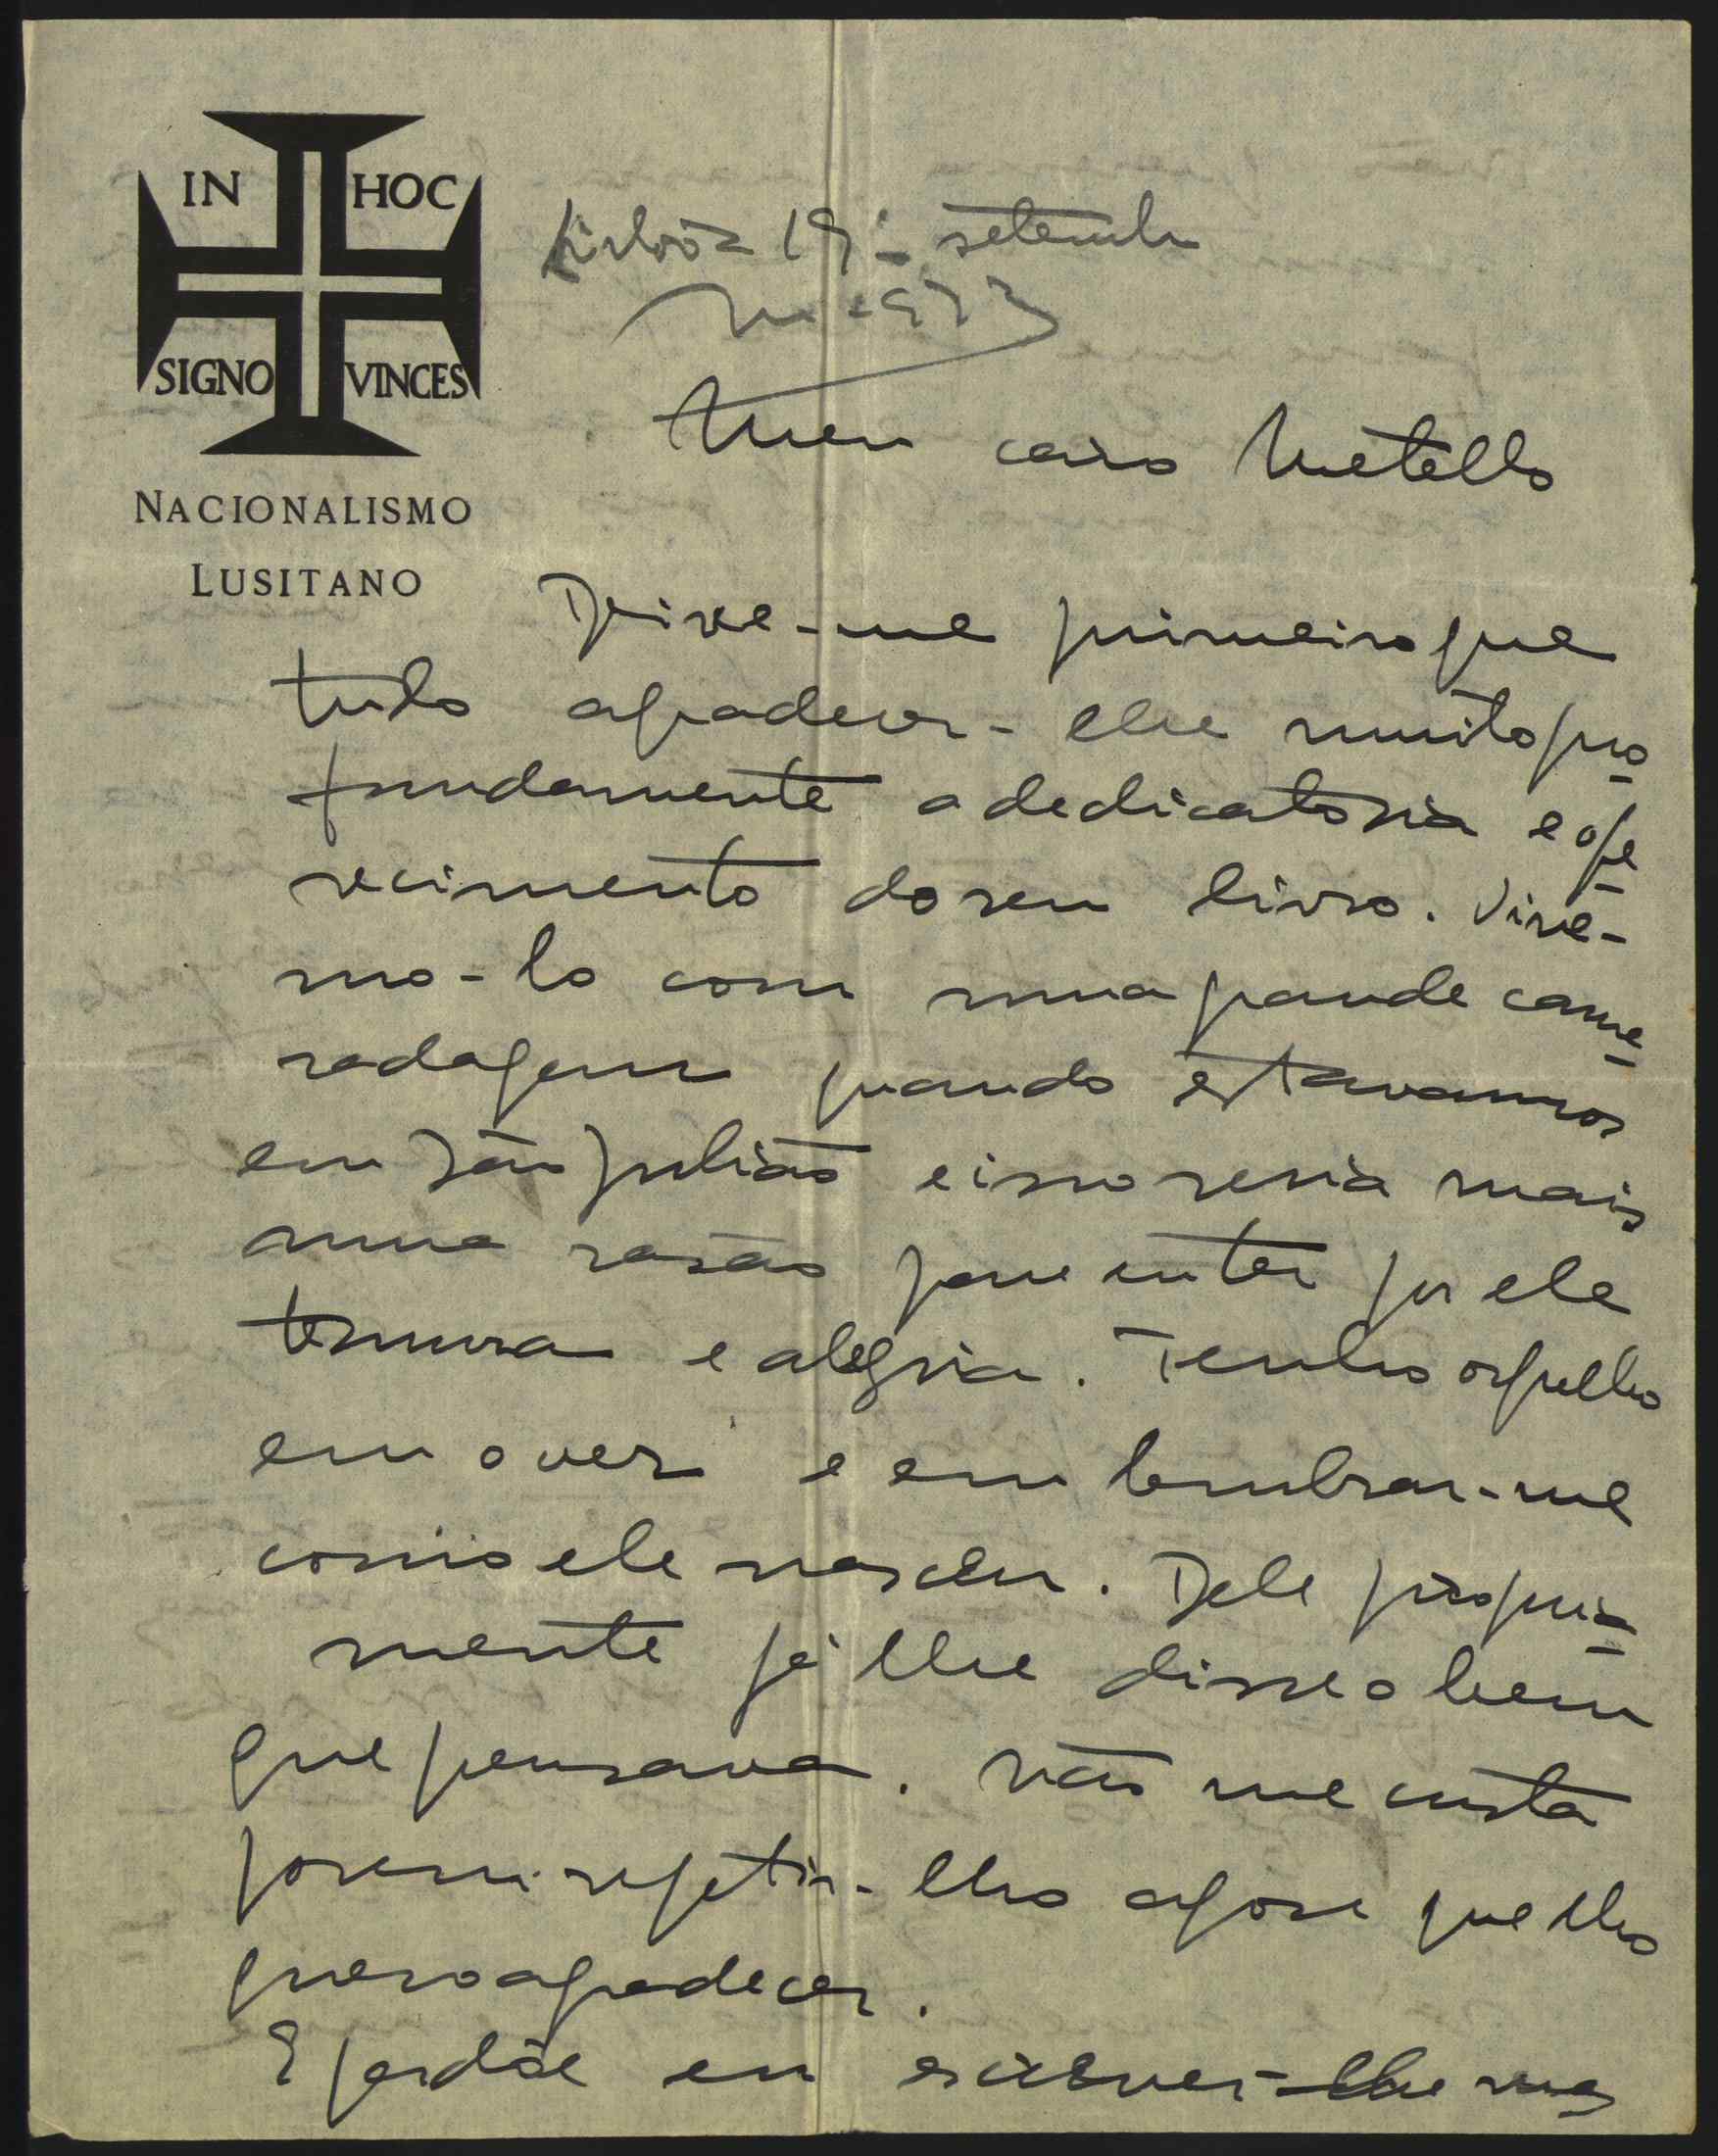 IN HOC
SIGNO VINCES
NACIONALISMO
LUSITANO
Lisboa 19 - setembro
1923
Meu caro Metello
Deixe-me primeiro que
tudo agradecer-lhe muito pro-
fundamente a dedicatoria e ofe-
recimento do seu livro. Vive-
mo-lo com uma grande cama-
radagem quando estavamos
em São Julião e isso seria mais
uma rasão para eu ter por ele
ternura e alegria. Tenho orgulho
em o ver e em lembrar-me
como ele nasceu. Dele propria-
mente já lhe disse o bem
que pensava. Não me custa
porem repetir-lho agora que lho
quero agradecer.
E perdôe eu escrever-lhe nes